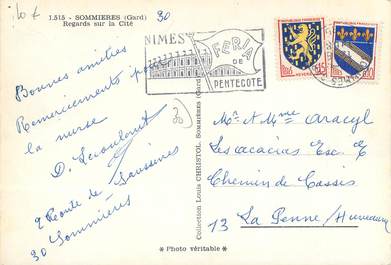 1.515 - SOMMIERES (Gard)
Regards sur la Cité
30
NIMES
FERIA
DE
PENTECOTE
Bonnes amitiés
Remerciements pour
la nurse
D.
Route de Saussines
30 Sommières
Collection Louis CHRISTOL, SOMMIÈRES (Gard)
Mr & Mme Aracyl
Les acacias Esc. E
Chemin de Cassis
13 La Penne / Huveaune
* Photo véritable *